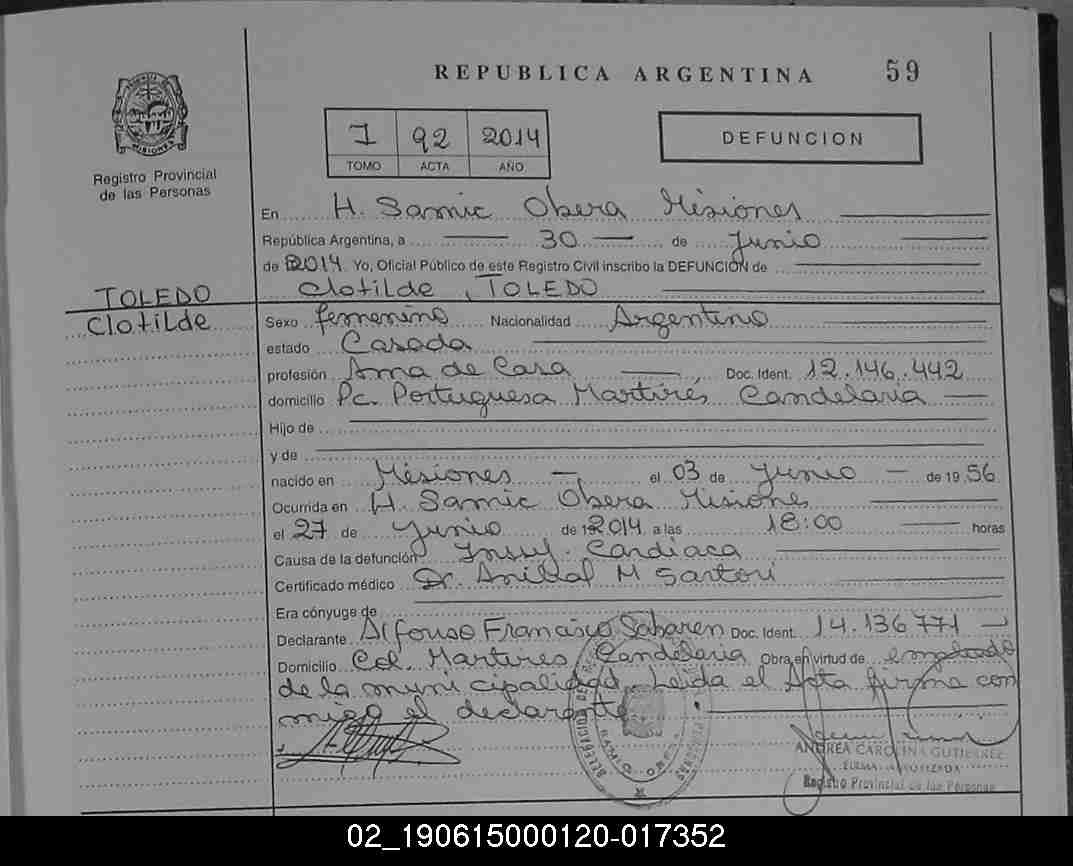 REPUBLICA ARGENTINA 59
I 92 2014
TOMO ACTA AÑO
DEFUNCION
Registro Provincial
de las Personas
En H. Samic Obera Misiones
República Argentina, a 30 de Junio
de 2014 Yo, Oficial Público de este Registro Civil inscribo la DEFUNCION de
TOLEDO
Clotilde, TOLEDO
Clotilde
Sexo femenino Nacionalidad Argentino
estado Casada
profesión Ama de Casa Doc. Ident. 12.146.442
domicilio Pc. Portuguesa Martires Candelaria
Hijo de
y de
nacido en Misiones el 03 de Junio de 1956
Ocurrida en H. Samic Obera Misiones
el 27 de Junio de 2014 a las 18:00 horas
Causa de la defunción Insuf. Cardiaca
Certificado médico Dr. Anibal M Sartori
Era cónyuge de
Declarante Alfonso Francisco Sabaren Doc. Ident. 14.136.771
Domicilio Col. Martires Candelaria Obra en virtud de empleado
de la municipalidad. Leida el Acta firma con
migo el declarante.
ANDREA CAROLINA GUTIERREZ
FIRMA AUTORIZADA
Registro Provincial de las Personas
02_190615000120-017352